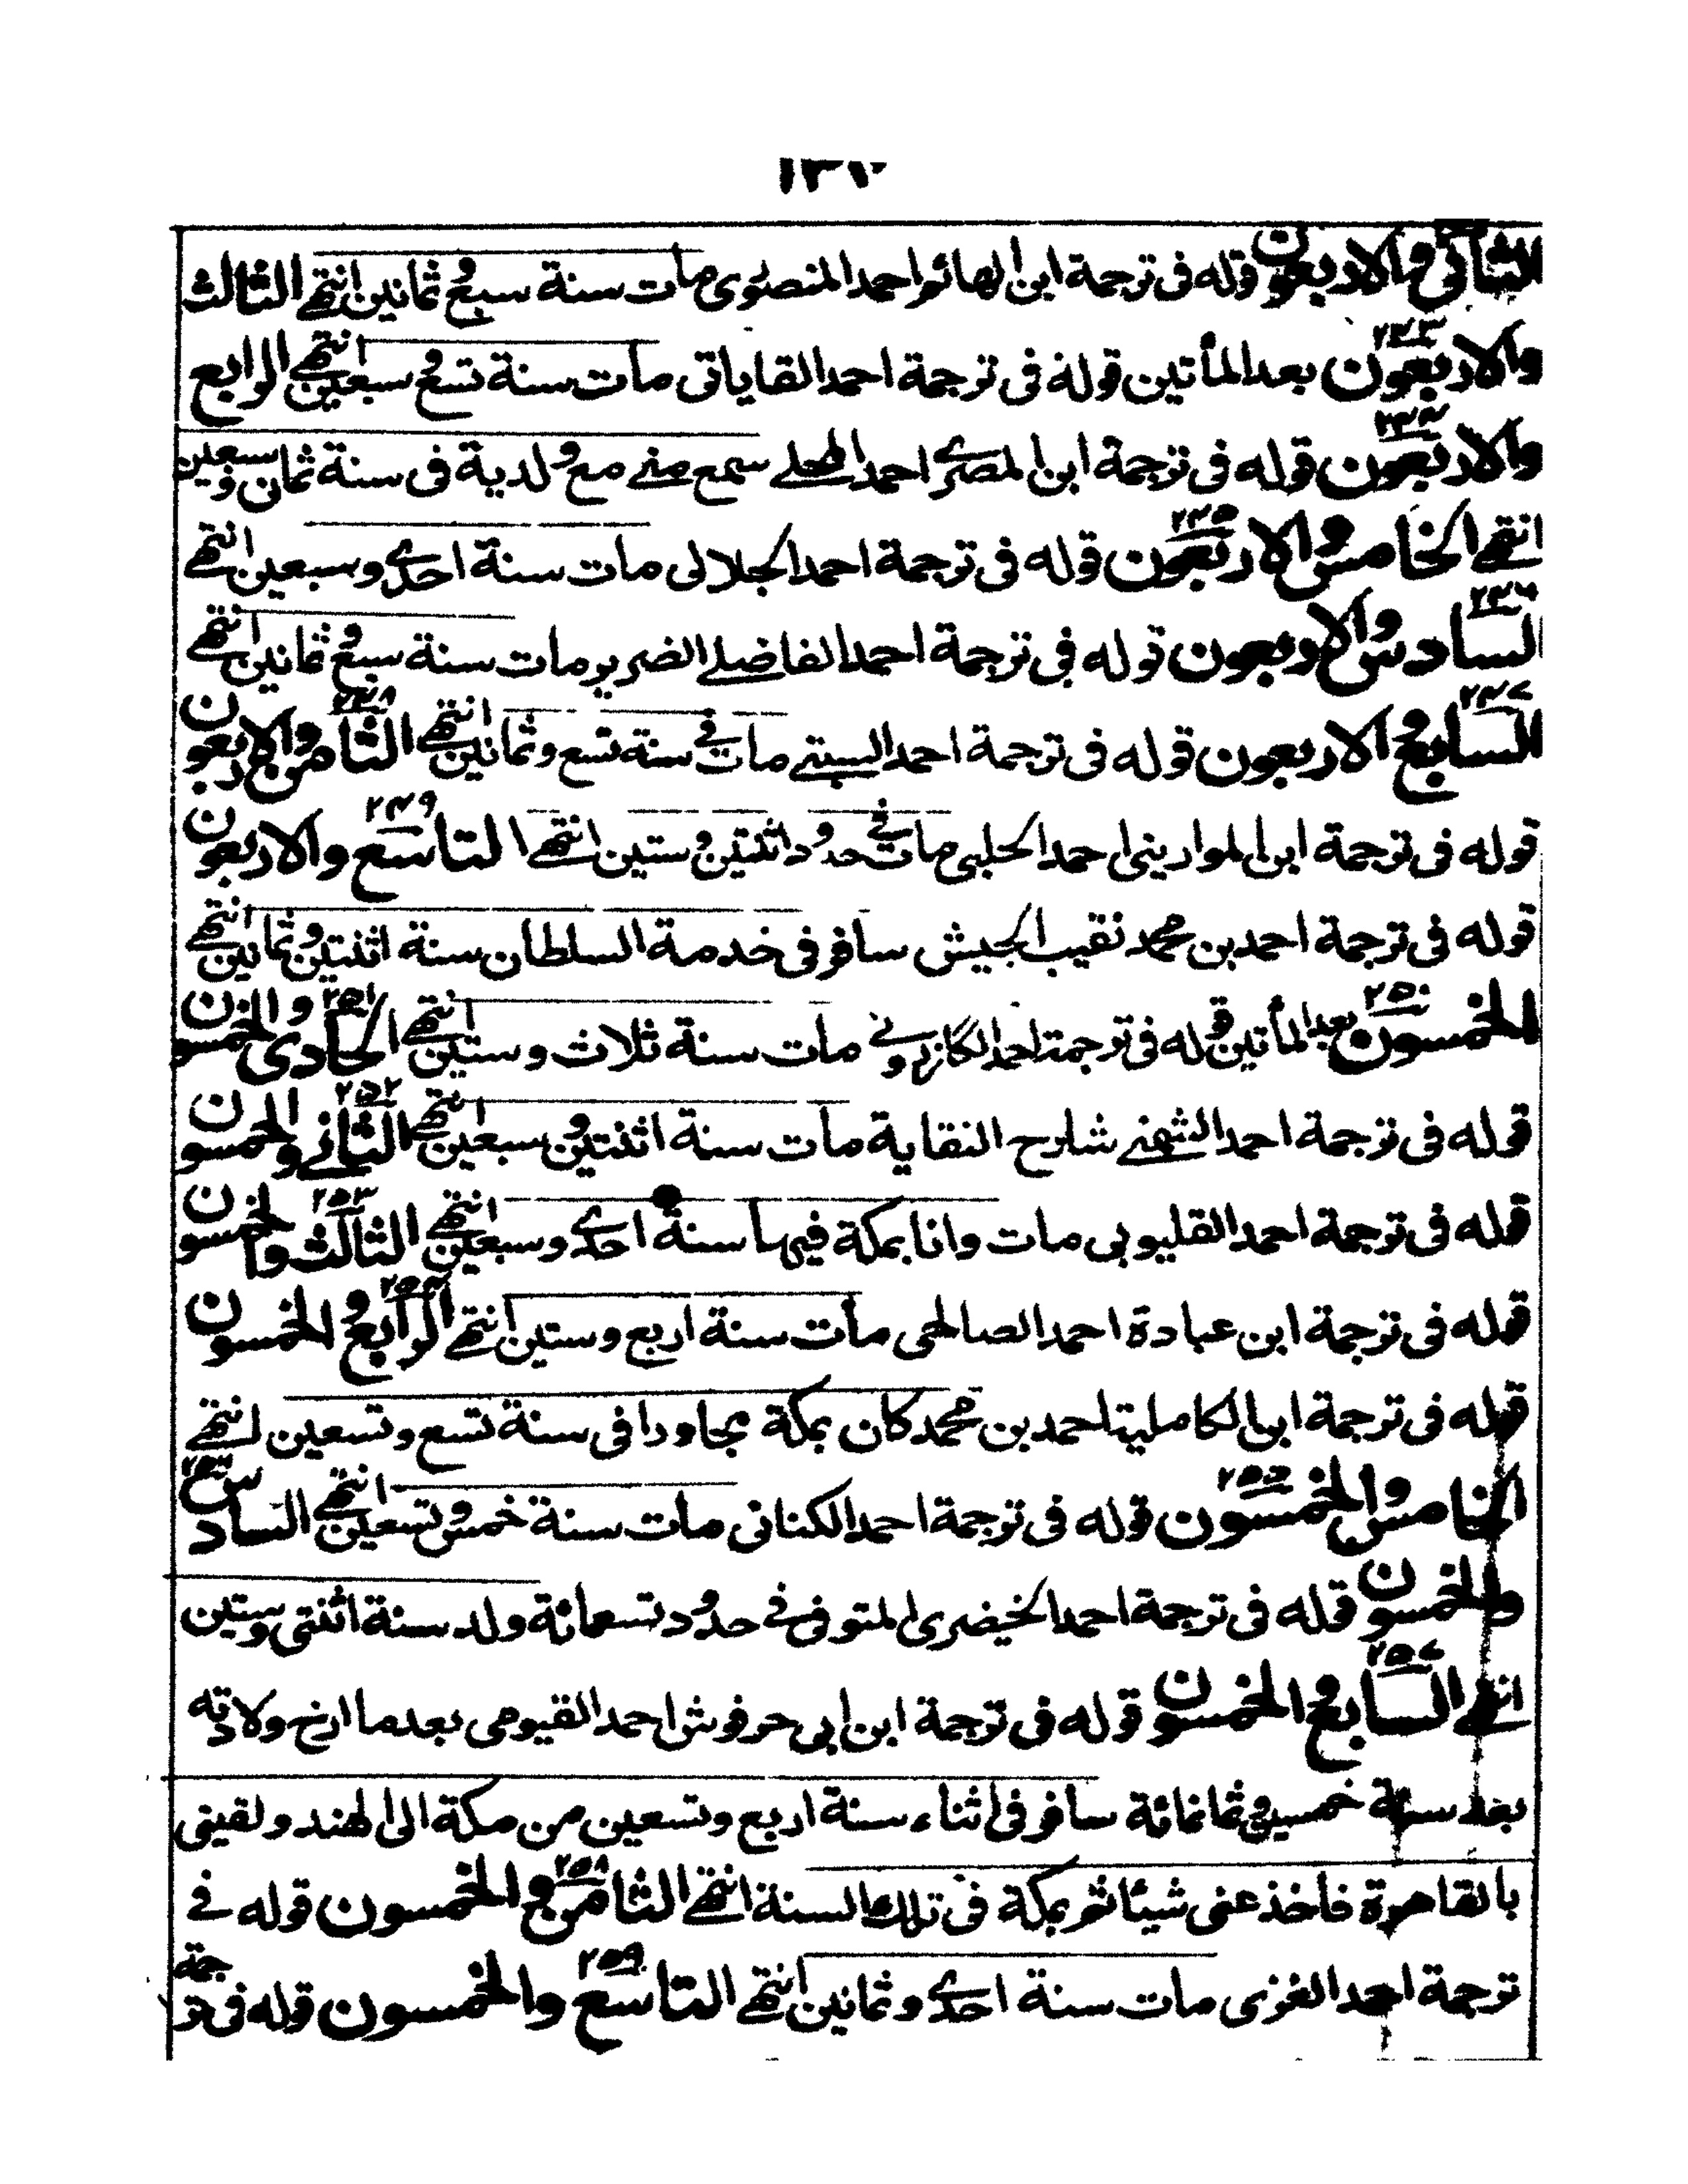 ١٣٧
الثاني والاربعون قوله فى ترجمة ابن الهائم احمد المنصورى مات سنة سبع و ثمانين انتهے الثالث
٢٤٣
والاربعون بعد المأتين قوله فى ترجمة احمد القاياتى مات سنة تسع و سبعين انتهے الرابع
٢٤٤
والاربعون قوله فى ترجمة ابن المصرے احمد المحلے سمع منے مع ولدية فى سنة ثمان و سبعين
٢٤٥
انتهے الخامس و الاربعون قوله فى ترجمة احمد الجلالى مات سنة احدے وسبعين انتهے
٢٤٦
السادس والاربعون قوله فى ترجمة احمد الفاضلے الضرير مات سنة سبع و ثمانين انتهے
٢٤٧ ٢٤٨
السابع و الاربعون قوله فى ترجمة احمد البستے مات فے سنة تسع وثمانين انتهے الثامن والاربعون
٢٤٩
قوله فى ترجمة ابن الموارينى احمد الحلبى مات فے حدود اثنتين وستين انتهے التاسع والاربعون
قوله فى ترجمة احمد بن محمد نقيب الجيش سافر فى خدمة السلطان سنة اثنتين وثمانين انتهے
٢٥٠ ٢٥١
الخمسون بعد المأتين قوله فى ترجمة احمد الگازرونے مات سنة ثلاث وستين انتهے الحادى والخمسون
٢٥٢
قوله فى ترجمة احمد الشمنے شارح النقاية مات سنة اثنتين و سبعين انتهے الثانے والخمسون
٢٥٣
قوله فى ترجمة احمد القليوبى مات وانا بمكة فيها سنة احدے وسبعين انتهے الثالث والخمسون
٢٥٤
قوله فى ترجمة ابن عبادة احمد الصالحى مات سنة اربع وستين انتهے الرابع و الخمسون
قوله فى ترجمة ابن الكاملية احمد بن محمد كان بمكة مجاورا فى سنة تسع وتسعين انتهے
٢٥٥ ٢٥٦
الخامس والخمسون قوله فى ترجمة احمد الكنانى مات سنة خمس وتسعين انتهے السادس
والخمسون قوله فى ترجمة احمد الخيضرى المتوفى فے حدود تسعمائة ولد سنة اثنتى وستين
٢٥٧
انتهے السابع و الخمسون قوله فى ترجمة ابن ابى حرفوش احمد الفيومى بعد ما ارخ ولادته
بعد سنة خمسين وثمانمائة سافر فى اثناء سنة اربع وتسعين من مكة الى الهند ولقينى
٢٥٨
بالقاهرة فاخذ عنى شيئا ثم بمكة فى تلك السنة انتهے الثامن و الخمسون قوله فے
٢٥٩
ترجمة احمد الغزى مات سنة احدے وثمانين انتهے التاسع والخمسون قوله فى ترجمة